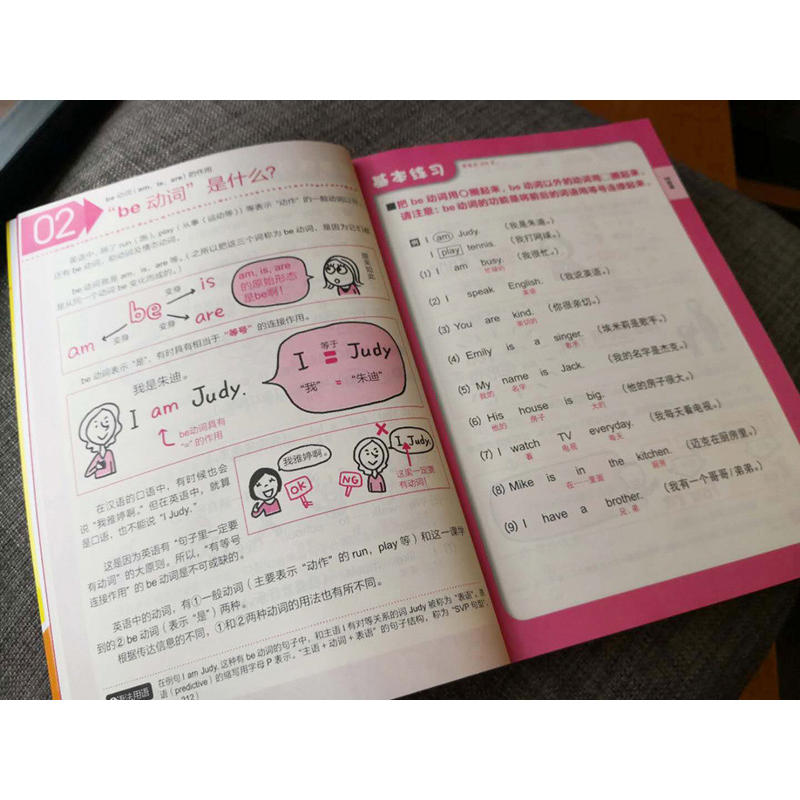 be 动词 (am, is, are) 的作用
02
“be 动词” 是什么?
英语中, 除了 run (跑), play (从事 (运动等)) 等表示 “动作” 的一般动词以外,
还有 be 动词, 助动词及情态动词。
be 动词就是 am, is, are 等。(之所以把这三个词称为 be 动词, 是因为它们都
是从同一个动词 be 变化而成的。)
变身
is
be
am
变身
变身
are
am, is, are
的原始形态
是be啊!
原来如此
be 动词表示 “是”, 有时具有相当于 “等号” 的连接作用。
我是朱迪。
I am Judy.
be动词具有
“=” 的作用
等于
I = Judy
“我” = “朱迪”
在汉语的口语中, 有时候也会
说 “我雅婷啊。” 但在英语中, 就算
是口语, 也不能说 “I Judy.”
我雅婷啊。
OK
NG
I Judy.
这里一定要
有动词!
这是因为英语有 “句子里一定要
有动词” 的大原则。所以, “有等号
连接作用” 的 be 动词是不可或缺的。
英语中的动词, 有①一般动词 (主要表示 “动作” 的 run, play 等) 和这一课学
到的② be 动词 (表示 “是”) 两种。
根据传达信息的不同, ①和②两种动词的用法也有所不同。
语法用语
在例句 I am Judy. 这种有 be 动词的句子中, 和主语 I 有对等关系的词 Judy 被称为 “表语”, 表
语 (predictive) 的缩写用字母 P 表示。“主语 + 动词 + 表语” 的句子结构, 称为 “SVP 句型”.
212)
基本练习
把 be 动词用○圈起来, be 动词以外的动词用□圈起来。
请注意: be 动词的功能是将前后的词语用等号连接起来。
例 I am Judy. (我是朱迪。)
I play tennis. (我打网球。)
(1) I am busy. (我很忙。)
忙碌的
(2) I speak English. (我说英语。)
英语
(3) You are kind. (你很亲切。)
亲切的
(4) Emily is a singer. (埃米莉是歌手。)
歌手
(5) My name is Jack. (我的名字是杰克。)
我的 名字
(6) His house is big. (他的房子很大。)
他的 房子 大的
(7) I watch TV everyday. (我每天看电视。)
看 电视 每天
(8) Mike is in the kitchen. (迈克在厨房里。)
在……里面 厨房
(9) I have a brother. (我有一个哥哥/弟弟。)
兄, 弟